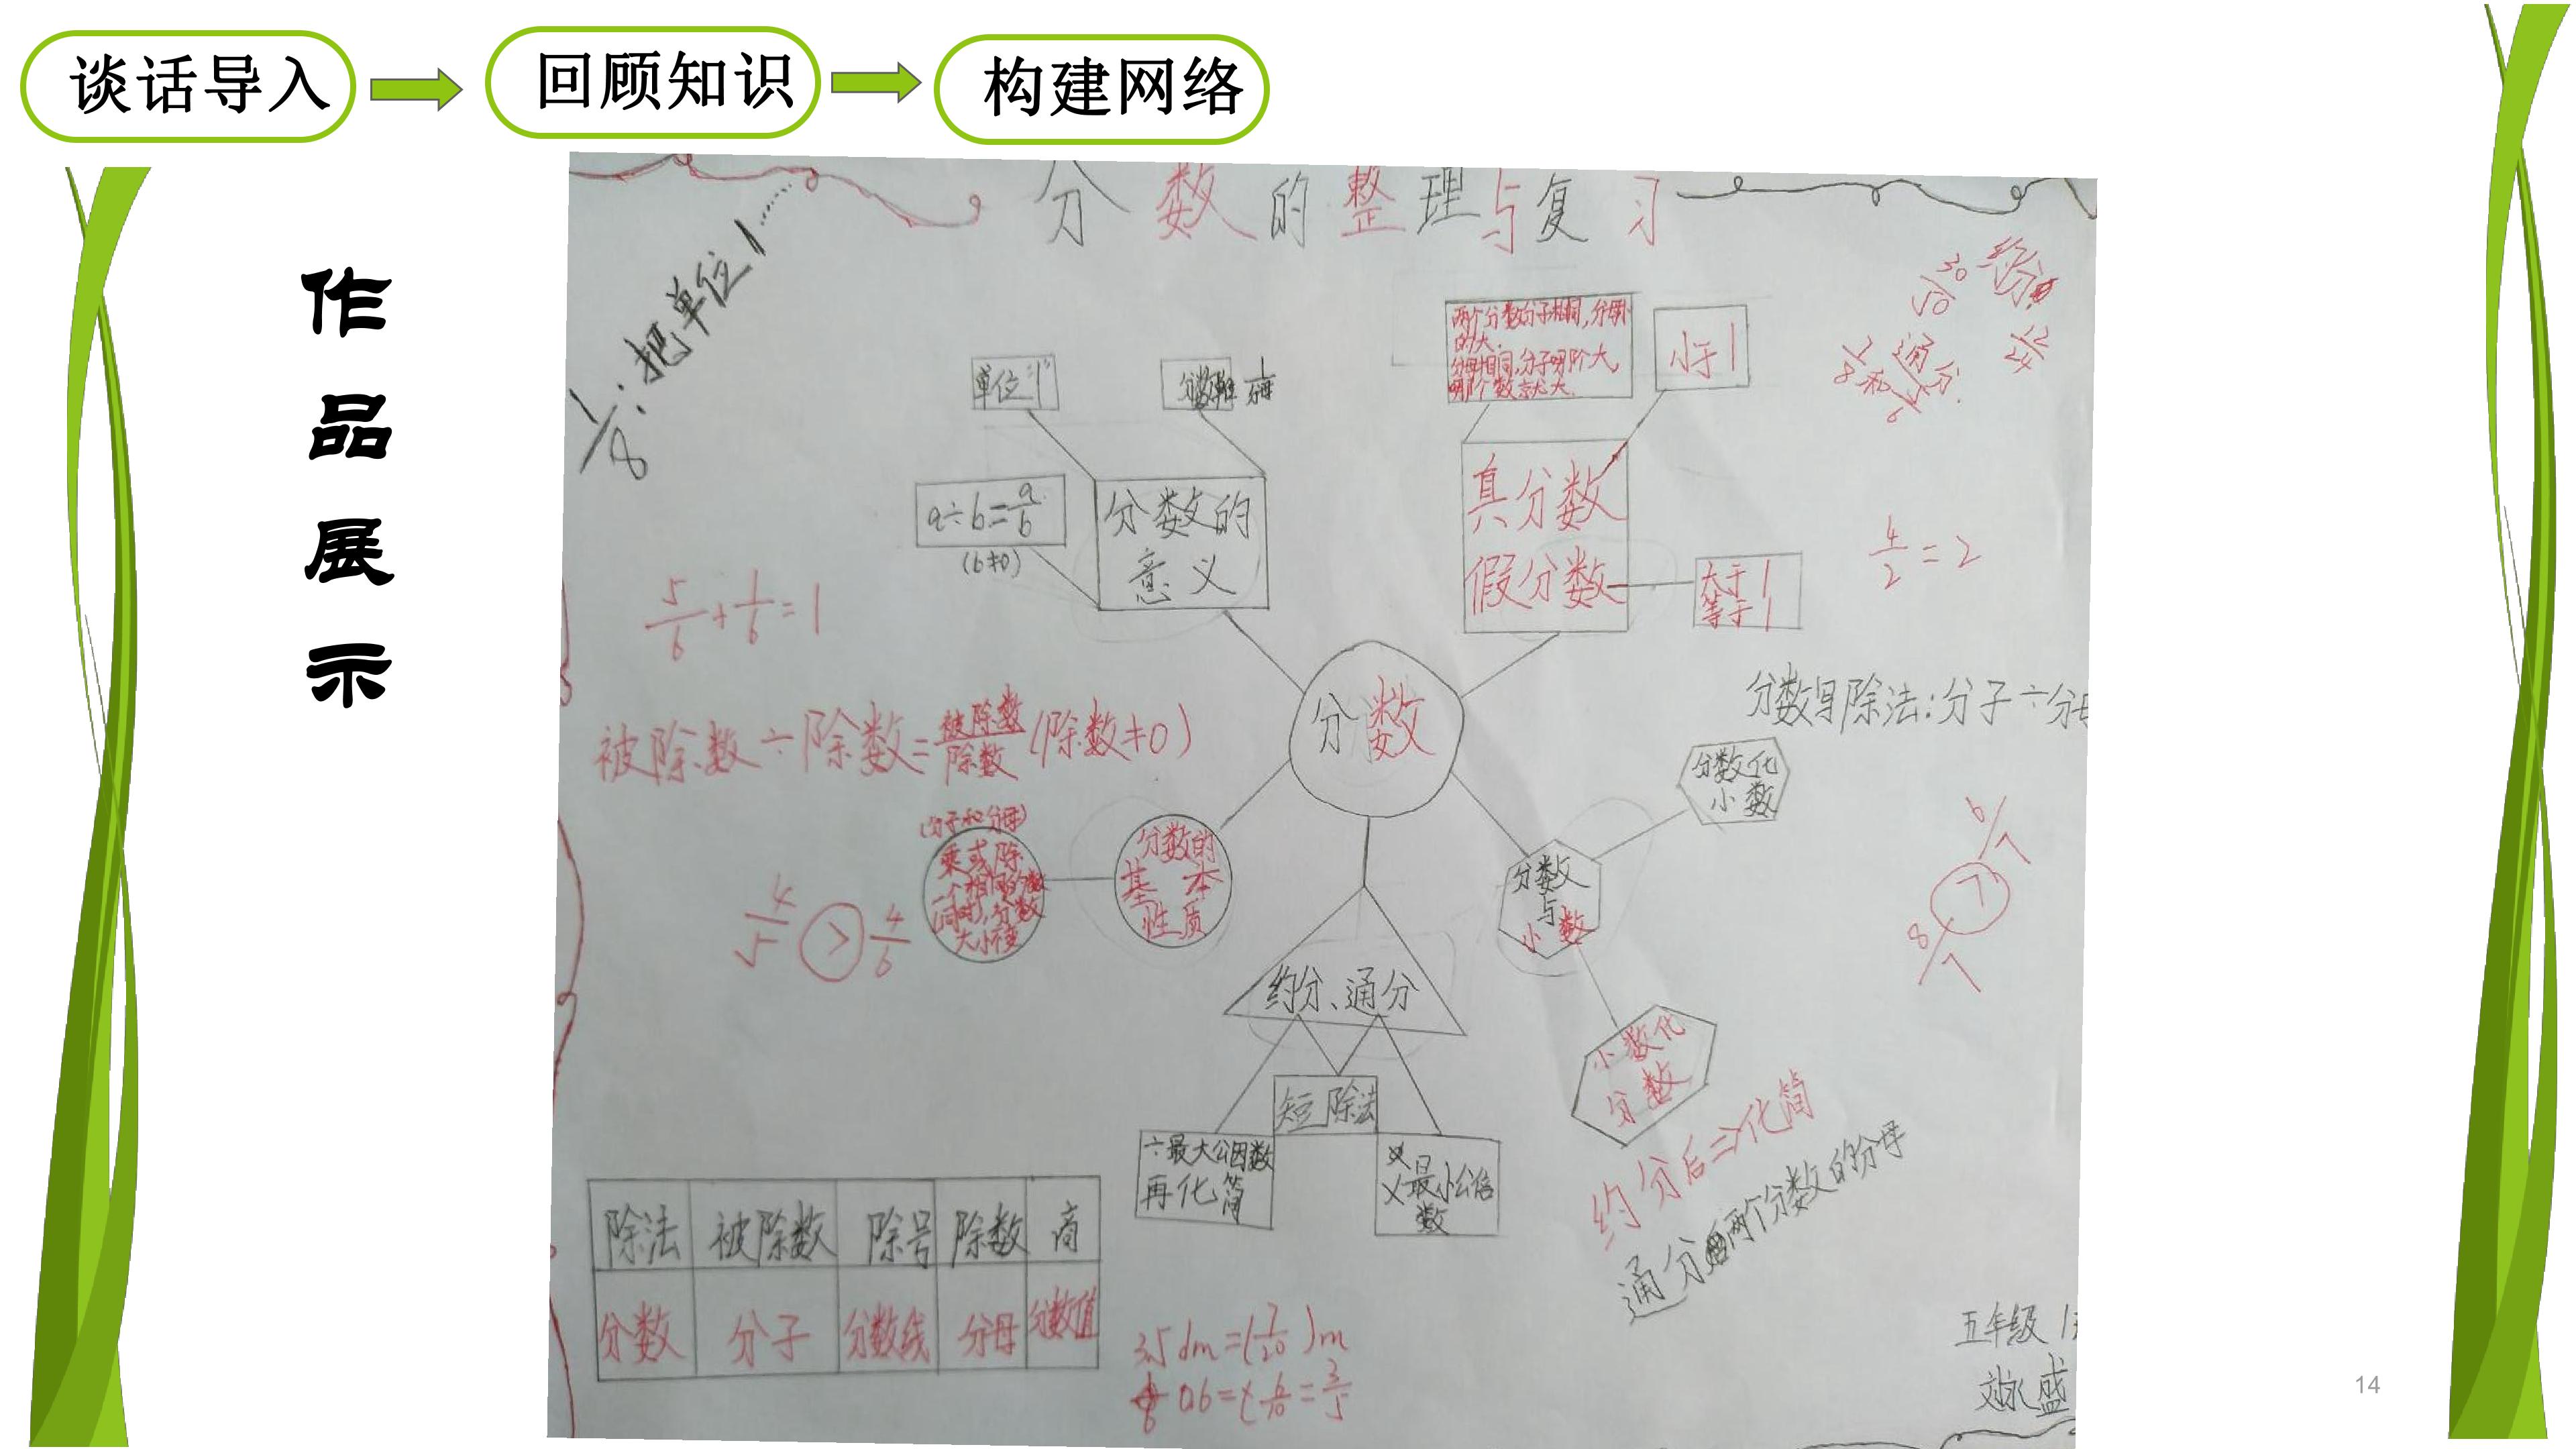 谈话导入
回顾知识
构建网络
作品展示
分数的整理与复习
1/8：把单位1……
单位"1"
分数单位 1/分母
a÷b=a/b
(b≠0)
分数的
意义
两个分数分子相同，分母小
的大.
分母相同，分子哪个大，
哪个数就大.
小于1
真分数
假分数
大于1
等于1
约分
30/50
通分.
4/2=2
5/6+1/6=1
分数
分数与除法：分子÷分母
被除数÷除数=被除数/除数(除数≠0)
分数化
小数
(分子和分母)
乘或除
一个相同的数
(同时)，分数
大小不变
分数的
基本
性质
分数
与
小数
4/5>4/6
约分、通分
小数化
分数
短除法
÷最大公因数
再化简
×最小公倍
数
约分后⇒化简
通分 两个分数的分母
除法 被除数 除号 除数 商
分数 分子 分数线 分母 分数值
3.5dm=(7/20)m
0.6=6/10=3/5
五年级1
14